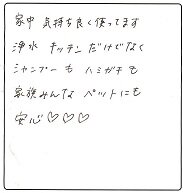 家中 気持ち良く使ってます
浄水 キッチンだけでなく
シャンプーも ハミガキも
家族みんな ペットにも
安心♡♡♡